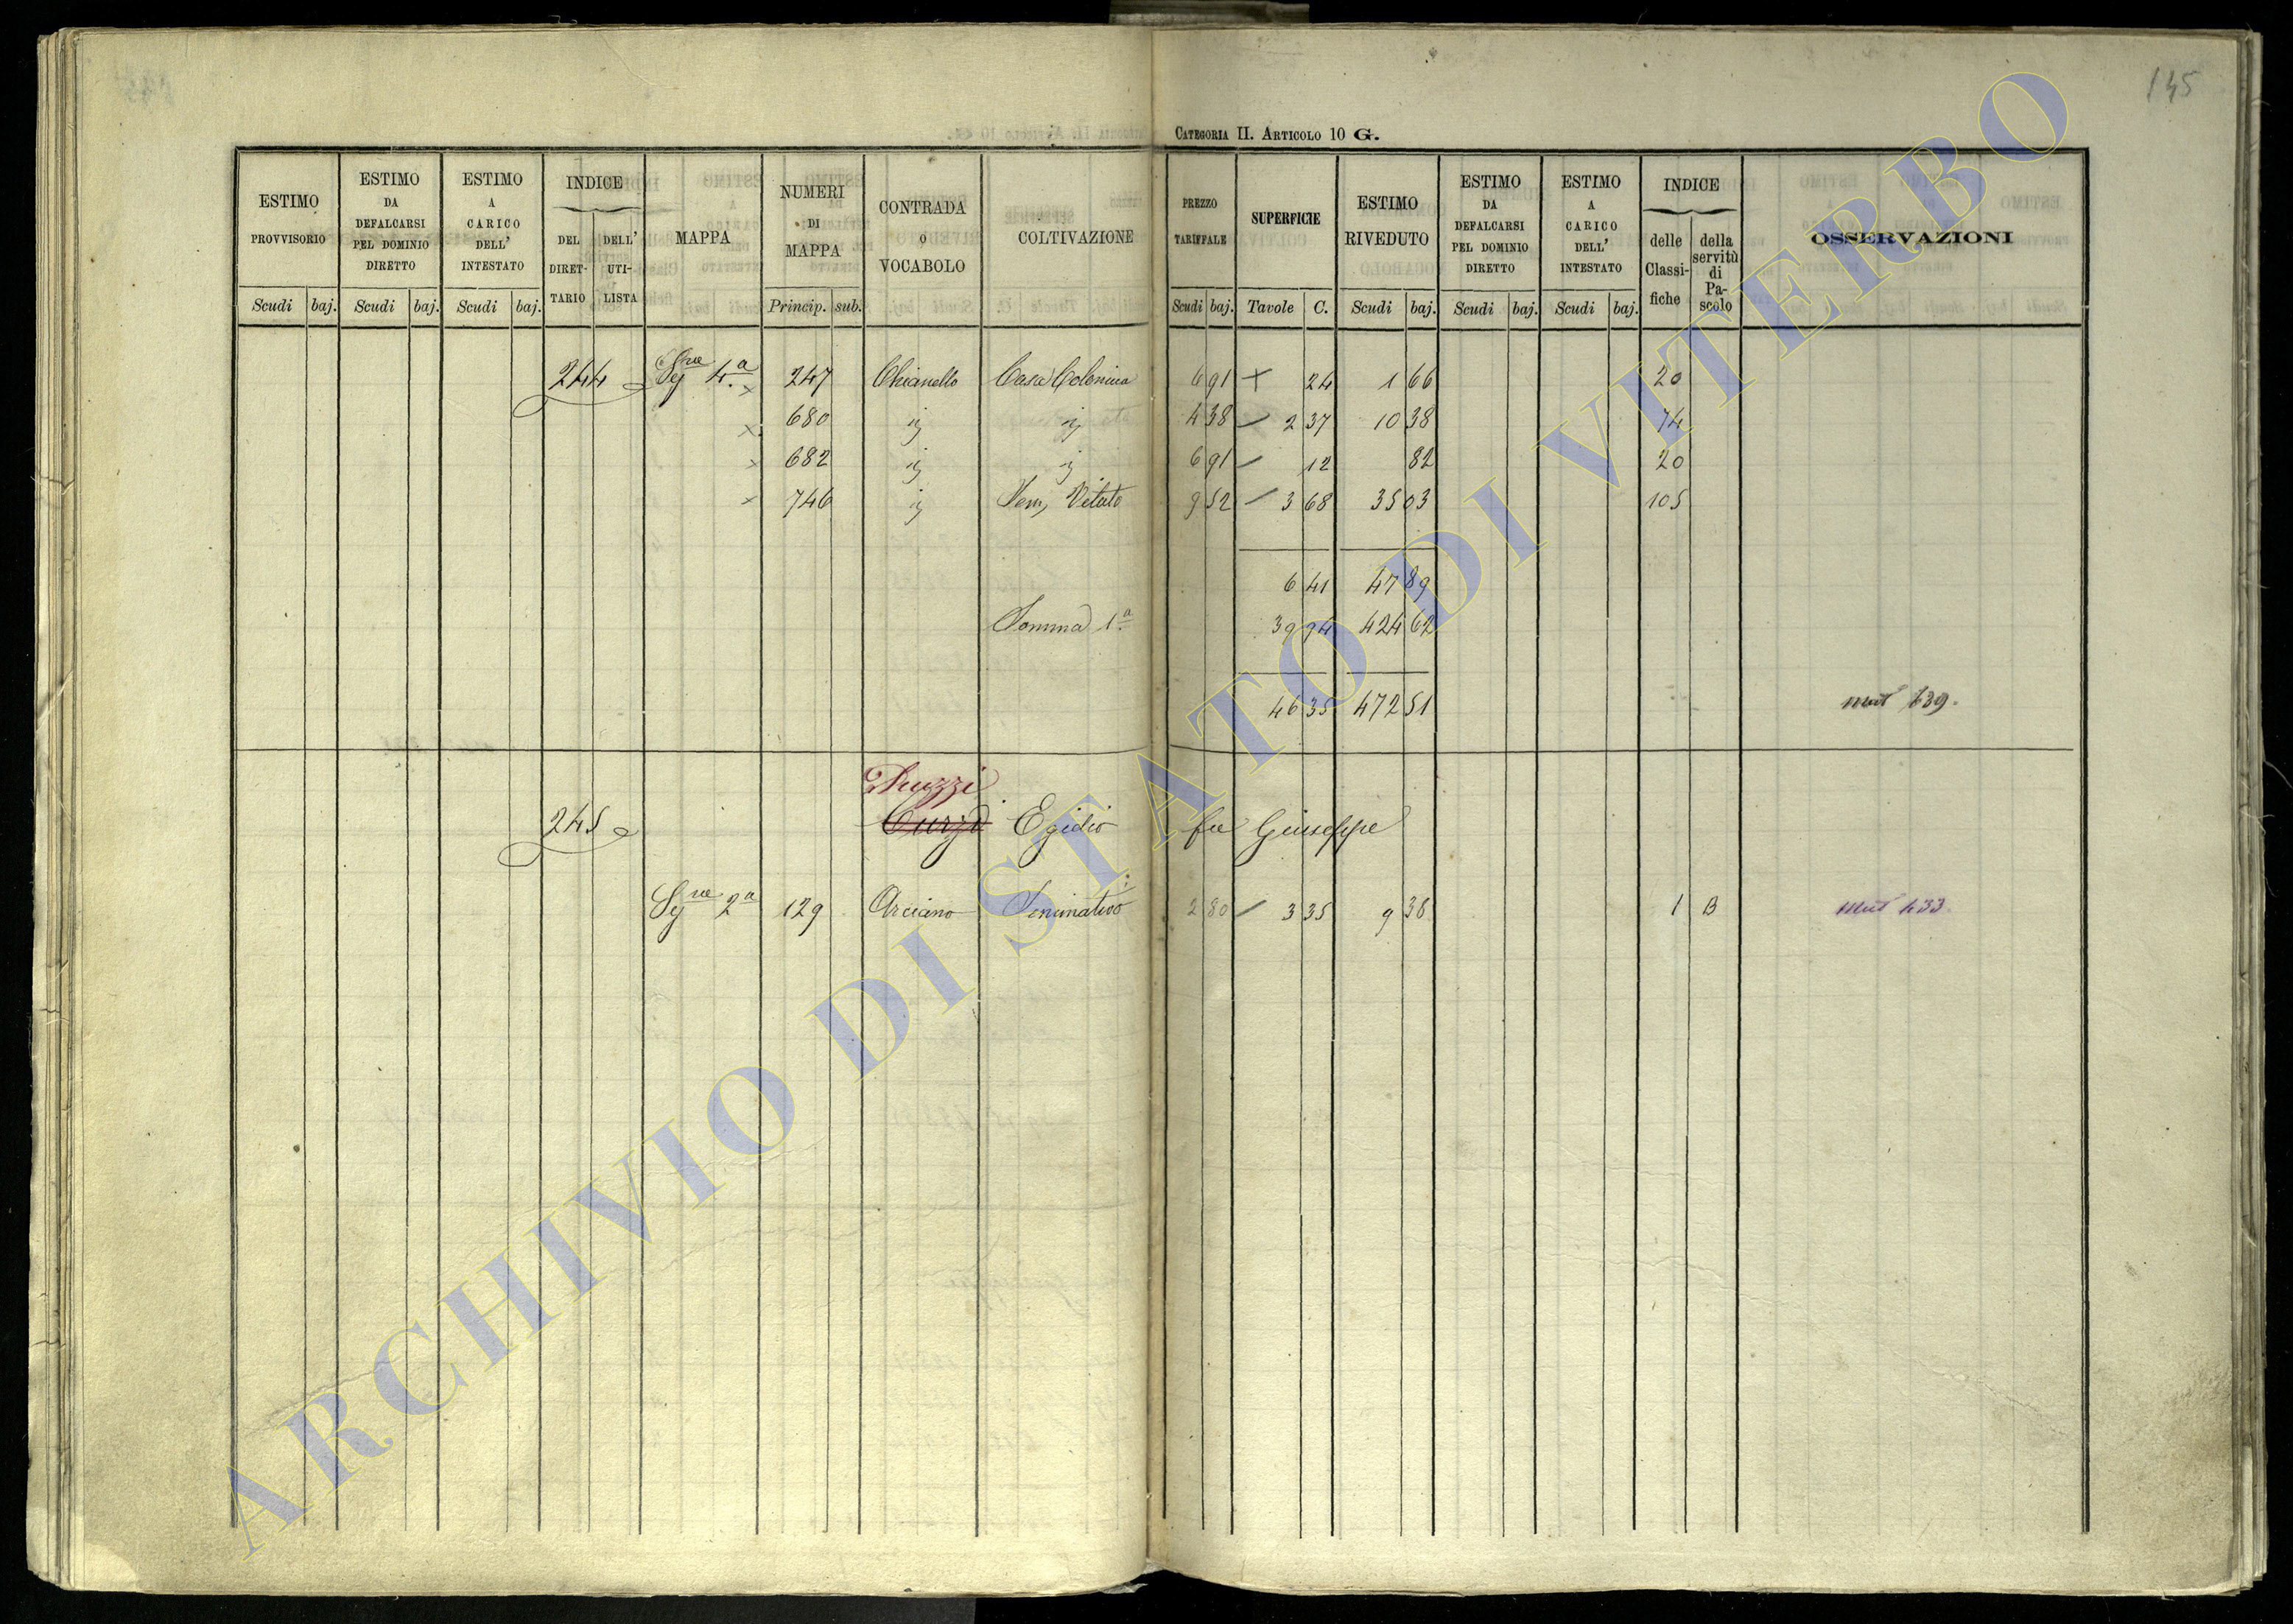 145
CATEGORIA II. ARTICOLO 10 G.
ESTIMO PROVVISORIO Scudi baj. ESTIMO DA DEFALCARSI PEL DOMINIO DIRETTO Scudi baj. ESTIMO A CARICO DELL' INTESTATO Scudi baj. INDICE DEL DIRET-TARIO DELL' UTI-LISTA MAPPA NUMERI DI MAPPA Princip. sub. CONTRADA O VOCABOLO COLTIVAZIONE PREZZO TARIFFALE Scudi baj. SUPERFICIE Tavole C. ESTIMO RIVEDUTO Scudi baj. ESTIMO DA DEFALCARSI PEL DOMINIO DIRETTO Scudi baj. ESTIMO A CARICO DELL' INTESTATO Scudi baj. INDICE delle Classi-fiche della servitù di Pa-scolo OSSERVAZIONI
244 Sgne 4.a × 247 Chianello Casa Colonica 6 91 + 24 1 66 20
× 680 ij ij 4 38 – 2 37 10 38 74
× 682 ij ij 6 91 – 12 82 20
× 746 ij Sem, Vitato 9 52 – 3 68 35 03 105
6 41 47 89
Somma 1.a 39 94 424 62
46 35 472 51 mut 439.
245 Curzi Egidio fu Giuseppe
Sgne 2a 129 Arciano Seminativo 2 80 – 3 35 9 38 1 B Mut 433.
ARCHIVIO DI STATO DI VITERBO